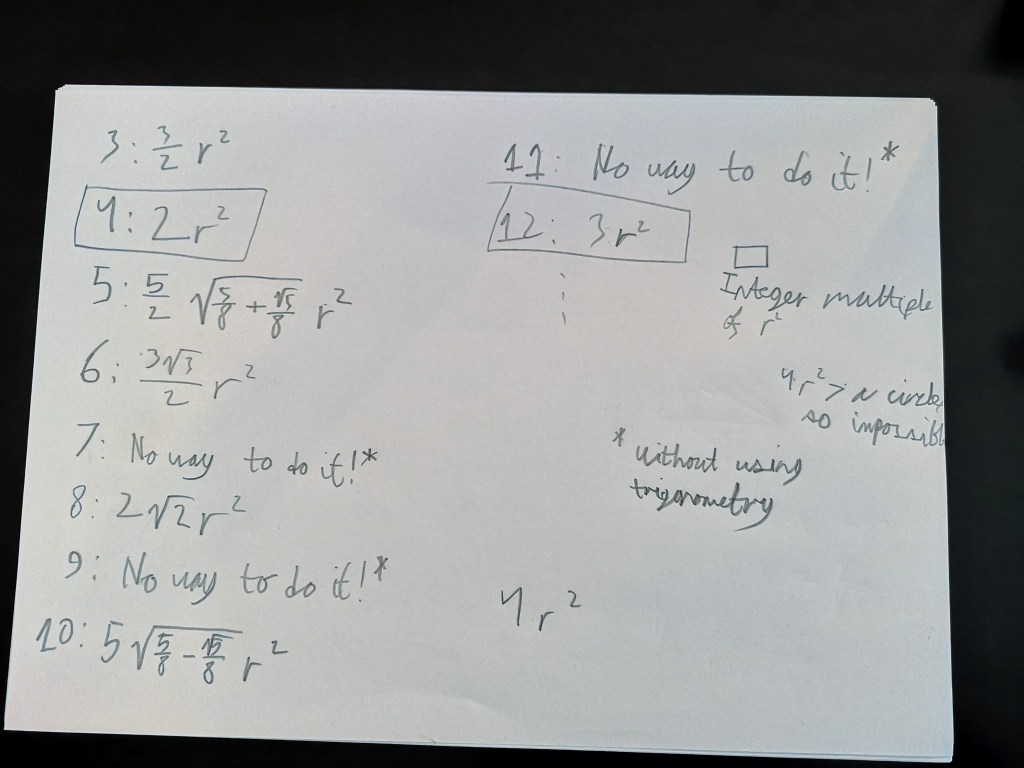 3: 3/2 r²
4: 2r²
5: 5/2 √(5/8 + √5/8) r²
6: 3√3/2 r²
7: No way to do it!*
8: 2√2 r²
9: No way to do it!*
10: 5 √(5/8 - √5/8) r²
11: No way to do it!*
12: 3r²
Integer multiple
of r²
4r² > a circle,
so impossible
* without using
trigonometry
4r²